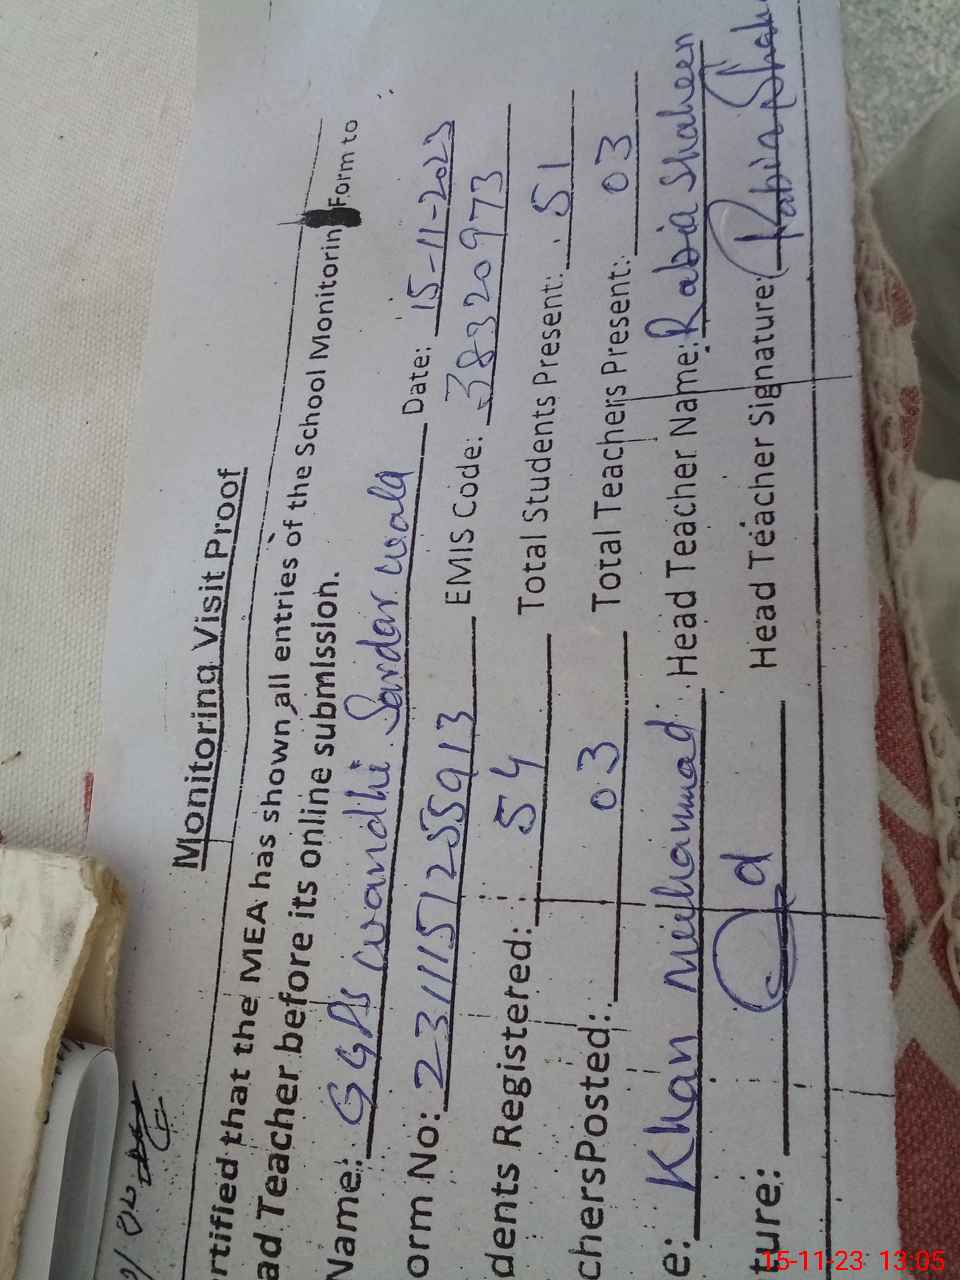 Monitoring Visit Proof
rtified that the MEA has shown all entries of the School Monitorin Form to
ad Teacher before its online submission.
Name: GGPS wandhi Sardar wala Date: 15-11-2023
orm No: 2311151255913 EMIS Code: 38320973
dents Registered: 54 Total Students Present: 51
chersPosted: 03 Total Teachers Present: 03
e: Khan Muhammad Head Teacher Name: Rabia Shaheen
ture: Head Teacher Signature: Rabia Shah
15-11-23 13:05